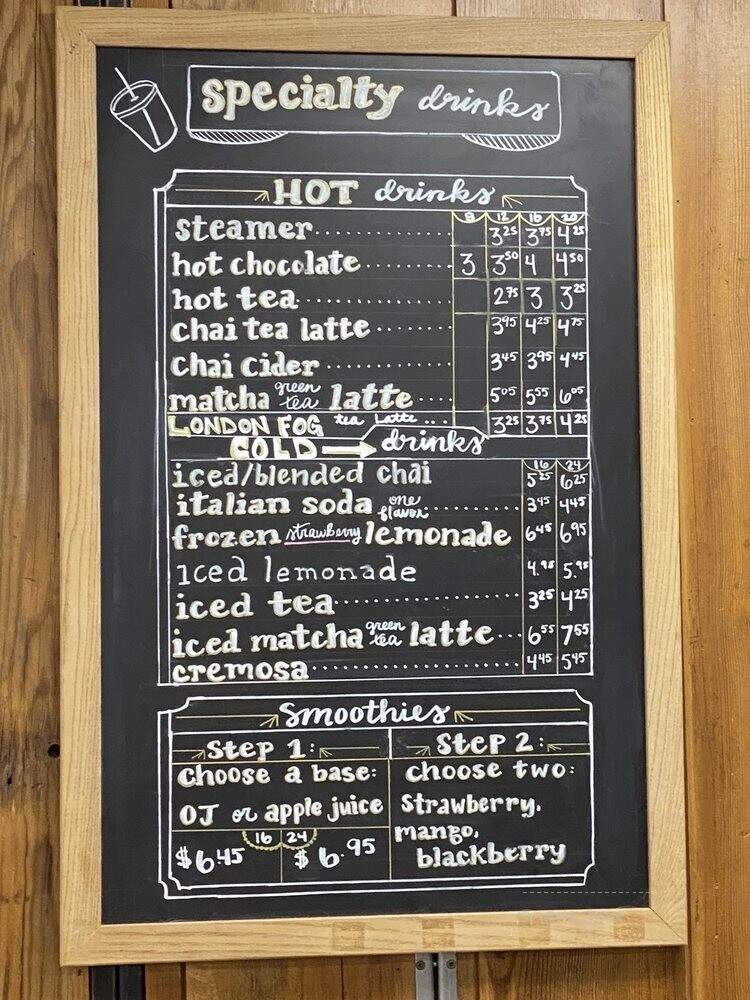 specialty drinks
HOT drinks
8 12 16 20
steamer 3.25 3.75 4.25
hot chocolate 3 3.50 4 4.50
hot tea 2.75 3 3.25
chai tea latte 3.95 4.25 4.75
chai cider 3.45 3.95 4.45
matcha green tea latte 5.05 5.55 6.05
LONDON FOG tea Latte 3.25 3.75 4.25
COLD drinks
16 24
iced/blended chai 5.25 6.25
italian soda one flavor 3.45 4.45
frozen strawberry lemonade 6.45 6.95
iced lemonade 4.95 5.95
iced tea 3.25 4.25
iced matcha green tea latte 6.55 7.55
cremosa 4.45 5.45
Smoothies
Step 1:
choose a base:
OJ or apple juice
16 24
$6.45 $6.95
Step 2:
choose two:
Strawberry,
mango,
blackberry